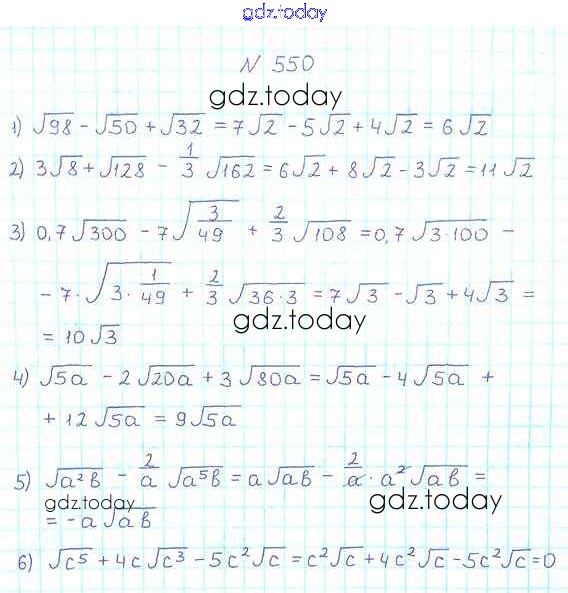 gdz.today
N 550
gdz.today
1) √98 - √50 + √32 = 7√2 - 5√2 + 4√2 = 6√2
2) 3√8 + √128 - 1/3 √162 = 6√2 + 8√2 - 3√2 = 11√2
3) 0,7√300 - 7√(3/49) + 2/3 √108 = 0,7√(3·100) -
- 7·√(3·1/49) + 2/3 √(36·3) = 7√3 - √3 + 4√3 =
gdz.today
= 10√3
4) √5a - 2√20a + 3√80a = √5a - 4√5a +
+ 12√5a = 9√5a
5) √(a²b) - 2/a √(a⁵b) = a√ab - 2/a · a²√ab =
gdz.today gdz.today
= -a√ab
6) √c⁵ + 4c√c³ - 5c²√c = c²√c + 4c²√c - 5c²√c = 0